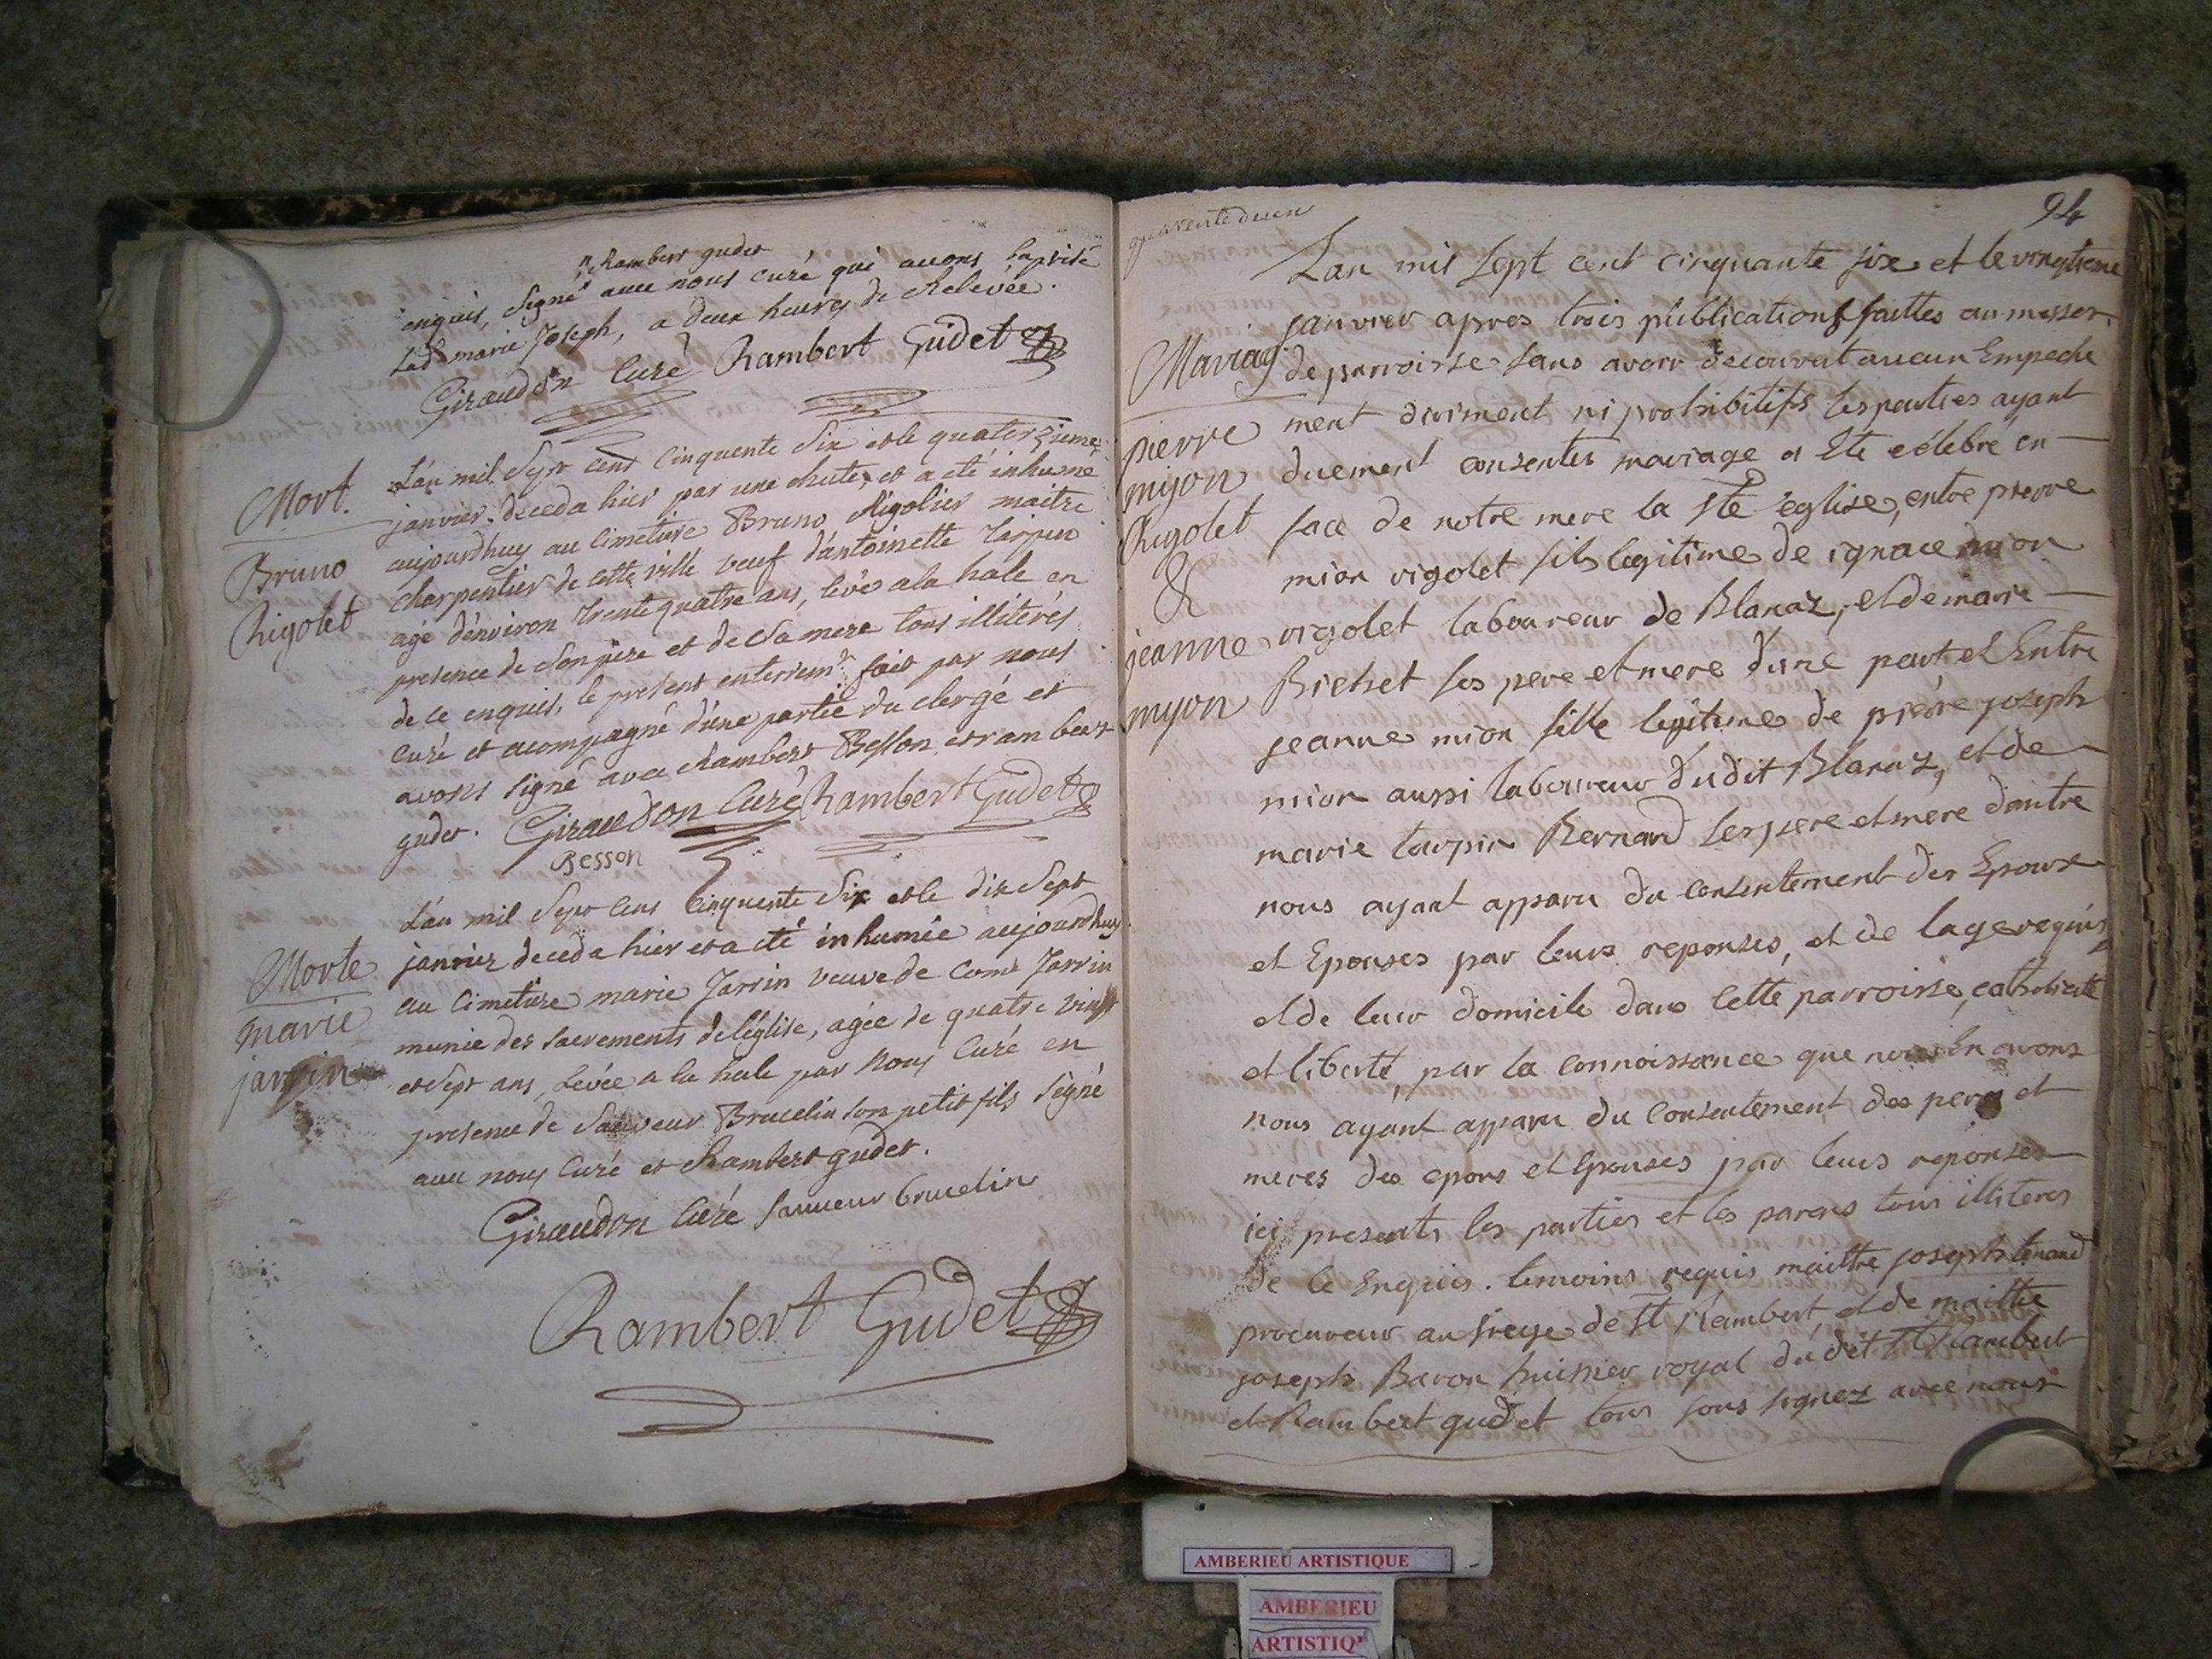 Rambert gudet
enquis, signé avec nous curé qui avons baptisé
lad marie Joseph, a deux heures de Relevée.
Giraudon Curé Rambert Gudet
Mort.
Bruno
Rigolet
L'an mil Sept cent Cinquente Six et le quatorzieme
janvier deceda hier par une chute, et a été inhumé
aujourdhuy au Cimetiere Bruno Rigolier maitre
charpentier de cette ville veuf d'antoinette Tarpin
agé d'environ trente quatre ans, levé a la hale en
presence de son pere et de sa mere tous illitérés
de ce enquis, le present enterremt. fait par nous
Curé et acompagné d'une partie du clergé et
avons signé avec Rambert Besson et rambert
gudet. Giraudon Curé Rambert Gudet
Besson
Morte
marie
jarrin
L'an mil Sept cens Cinquente Six et le dix Sept
janvier deceda hier et a été inhumée aujourdhuy
au Cimetiere marie Jarrin veuve de Come Jarrin
munie des sacrements de l'église, agée de quatre vingt
et Sept ans, Levée a la hale par Nous Curé en
presence de Sauveur Brucelin son petit fils Signé
avec nous Curé et Rambert gudet.
Giraudon Curé Sauveur brucelin
Rambert Gudet
94
quarente deux
Mariag
pierre
mijon
Rigolet
&
jeanne
myon
Lan mil Sept cent cinquante six et le vingtieme
janvier apres trois publications faittes au messes
de parroisse sans avoir decouvert aucun Empeche
ment diriment ni prohibitifs les parties ayant
duement consenties mariage a Eté célébré en
face de notre mere la Ste église, entre pierre
mion rigolet fils legitime de ignace mion
rigolet laboureur de Blanaz, et de marie
Biehet ses pere et mere d'une part et Entre
jeanne mion fille legitime de piérre joseph
mion aussi laboureur dudit Blanaz, et de
marie tarpin Bernard ses pere et mere d'autre
nous ayant apparu du consentement des Epoux
et Epouses par leurs reponses, et de lage requis,
et de leur domicile dans cette parroisse, catholicité
et liberté, par la connoissance que nous En avons
nous ayant apparu du Consentement des peres et
meres des epoux et Epouses par leurs reponses
ici presents les parties et les parens tous illiteres
de ce Enquis. temoins requis maittre joseph tenand
procureur au siege de St Rambert, et de maittre
joseph Baron huissier royal du dit St Rambert
et Rambert gudet tous sous signez avec nous
AMBERIEU ARTISTIQUE
AMBERIEU
ARTISTIQ